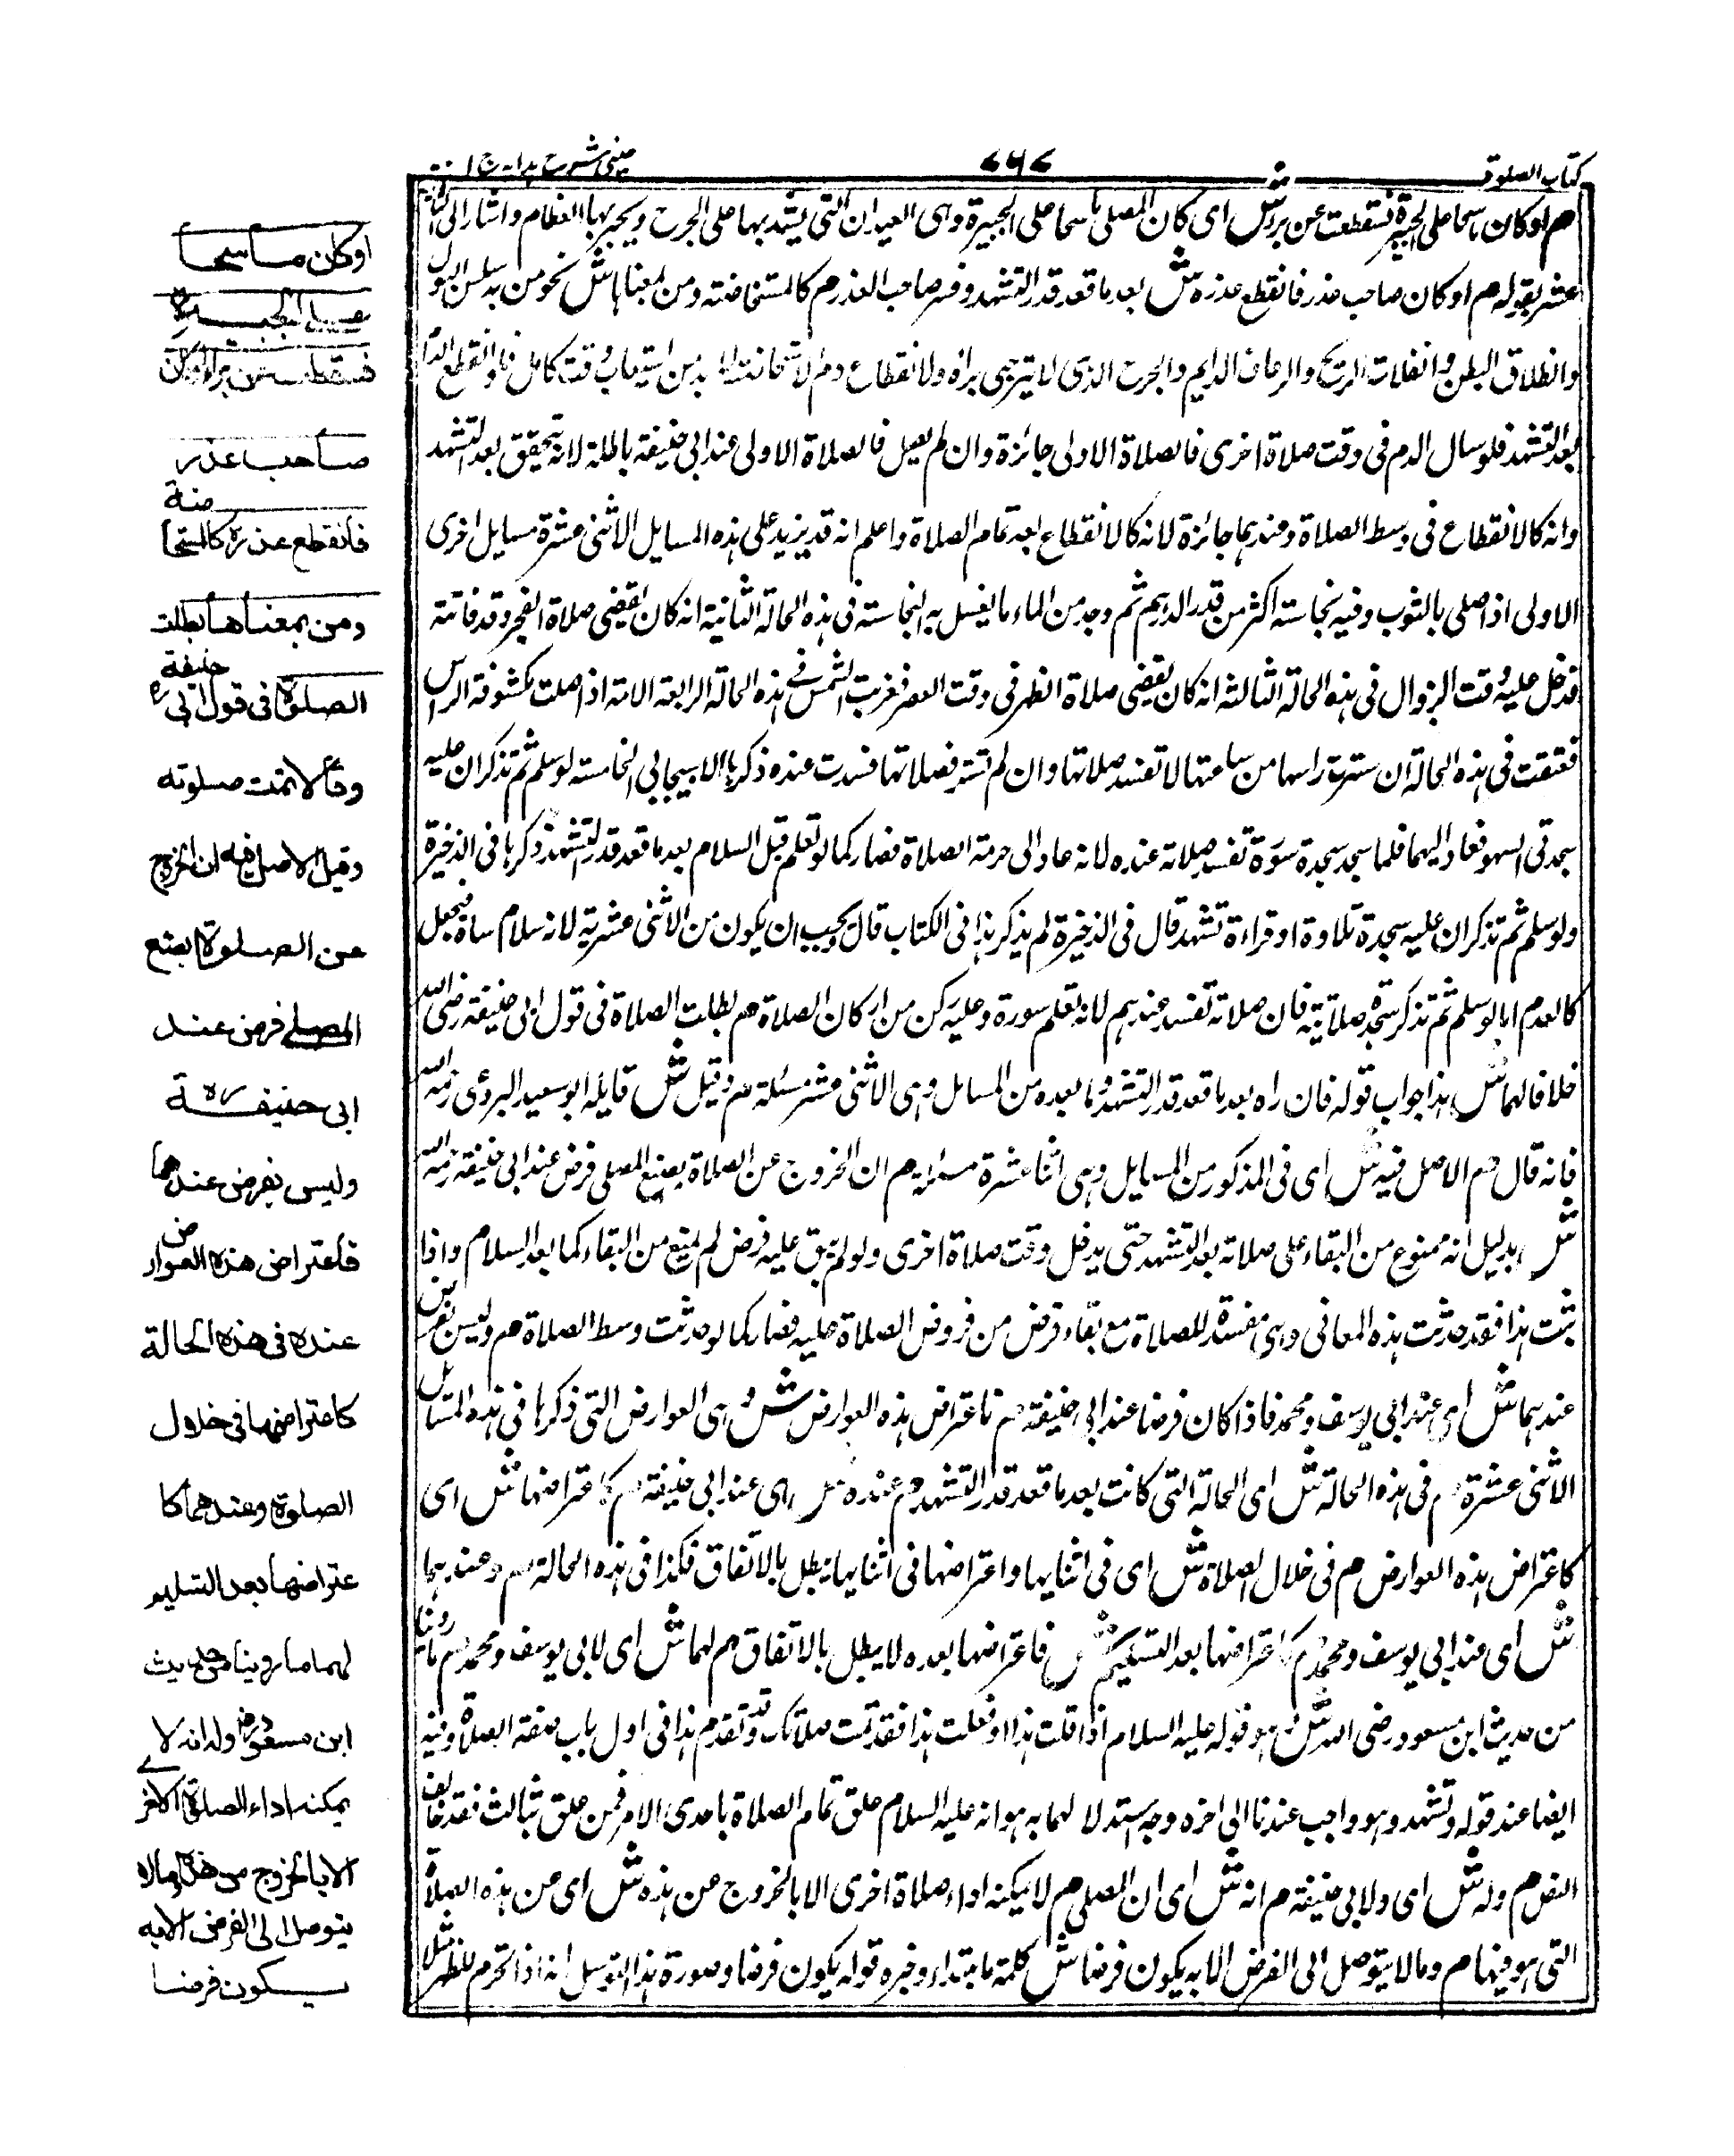 كتاب الصلوة
٧٦٧
عيني شرح هداية ج ١
م اوكان ماسحا على الجبيرة فسقطت عن برء ش اى كان المصلى ماسحا على الجبيرة وهى العيدان التى يشد بها على الجرح ويجبر بها العظام واشار الى
عشر بقوله م اوكان صاحب عذر فانقطع عذره ش بعد ما قعد قدر التشهد وفسر صاحب العذر م كالمستحاضة ومن بمعناها ش نحو من به سلس البول
وانطلاق البطن وانفلات الريح والرعاف الدايم والجرح الذى لا يرجى براه ولانقطاع دم الاستحاضة لا بد من استيعاب وقت كامل فلو انقطع الدم
بعد التشهد فلو سال الدم فى وقت صلاة اخرى فالصلاة الاولى جائزة وان لم يسل فالصلاة الاولى عند ابى حنيفة باطلة لانه تحقق بعد التشهد
وانه كالانقطاع فى وسط الصلاة وعندهما جائزة لانه كالانقطاع بعد تمام الصلاة واعلم انه قد يزيد على هذه المسايل الاثنى عشرة مسايل اخرى
الاولى اذا صلى بالثوب وفيه نجاسة اكثر من قدر الدرهم ثم وجد من الماء ما يغسل به النجاسة فى هذه الحالة الثانية انه كان يقضى صلاة الفجر وقد فاتته
فدخل عليه وقت الزوال فى هذه الحالة الثالثة انه كان يقضى صلاة الظهر فى وقت العصر فغربت الشمس فى هذه الحالة الرابعة الامة اذا صلت مكشوفة الراس
فعتقت فى هذه الحالة ان سترت راسها من ساعتها لا تفسد صلاتها وان لم تستر فصلاتها فسدت عنده ذكرها الاسبيجابى الخامسة لو سلم ثم تذكر ان عليه
سجدتى السهو فعاد اليهما فلما سجد سجدة سورة تفسد صلاته عنده لانه عاد الى حرمة الصلاة فصار كما لو تعلم قبل السلام بعد ما قعد قدر التشهد ذكرها فى الذخيرة
ولو سلم ثم تذكر ان عليه سجدة تلاوة او قراءة تشهد قال فى الذخيرة لم يذكر هذا فى الكتاب قال ويجب ان يكون من الاثنى عشرية لانه سلام ساه فيجعل
كالعدم اما لو سلم ثم تذكر سجدة صلاتية فان صلاته تفسد عندهم لانه تعلم سورة وعليه ركن من اركان الصلاة م بطلت الصلاة فى قول ابى حنيفة رضى الله
خلافا لهما ش هذا جواب قوله فان راه بعد ما قعد قدر التشهد وما بعده من المسايل وهى الاثنى عشر مسئلة م وقيل ش قايله ابو سعيد البردعى رحمه الله
فانه قال م الاصل فيه ش اى فى المذكور من المسايل وهى اثنا عشرة مسئلة م ان الخروج عن الصلاة بصنع المصلى فرض عند ابى حنيفة رحمه الله
ش بدليل انه ممنوع من البقاء على صلاته بعد التشهد حتى يدخل وقت صلاة اخرى ولو لم يبق عليه فرض لم يمنع من البقاء كما بعد السلام واذا
ثبت هذا فقد حدثت هذه المعانى وهى مفسدة للصلاة مع بقاء فرض من فروض الصلاة عليه فصار كما لو حدثت وسط الصلاة م وليس بفرض
عندهما ش اى عند ابى يوسف ومحمد فاذا كان فرضا عند ابى حنيفة م فاعتراض هذه العوارض ش وهى العوارض التى ذكرها فى هذه المسايل
الاثنى عشرة م فى هذه الحالة ش اى الحالة التى كانت بعد ما قعد قدر التشهد م عنده ش اى عند ابى حنيفة م كاعتراضها ش اى
كاعتراض هذه العوارض م فى خلال الصلاة ش اى فى اثنايها واعتراضها فى اثنايها يبطل بالاتفاق فكذا فى هذه الحالة م وعندهما
ش اى عند ابى يوسف ومحمد م كاعتراضها بعد التسليم ش فاعتراضها بعده لا يبطل بالاتفاق م لهما ش اى لابى يوسف ومحمد م ما روينا
من حديث ابن مسعود رضى الله ش هو قوله عليه السلام اذا قلت هذا او فعلت هذا فقد تمت صلاتك وقد تقدم هذا فى اول باب صفة الصلاة وفيه
ايضا عند قوله وتشهد وهو واجب عندنا الى اخره وجه استدلالهما به هو انه عليه السلام علق تمام الصلاة باحدى الامر فمن علق بثالث فقد خالف
النص م وله ش اى ولابى حنيفة م انه ش اى ان المصلى م لا يمكنه اداء صلاة اخرى الا بالخروج من هذه ش اى من هذه الصلاة
التى هو فيها م وما لا يتوصل الى الفرض الا به يكون فرضا ش كلمة ما مبتداء وخبره قوله يكون فرضا وصورة هذا التوسل انه اذا تحرم للظهر مثلا
اوكان ماسحا
على الجبيرة
فسقطت عن براوكان
صاحب عذر
فانقطع عذره كالمستحاضة
ومن بمعناها بطلت
الصلوة فى قول ابى حنيفة ره
وقالا تمت صلوته
وقيل الاصل فيه ان الخروج
عن الصلوة بصنع
المصلى فرض عند
ابى حنيفة ره
وليس بفرض عندهما
فاعتراض هذه العوارض
عنده فى هذه الحالة
كاعتراضها فى خلال
الصلوة وعندهما كا
عتراضها بعد التسليم
لهما ما روينا من حديث
ابن مسعود رض وله انه لا
يمكنه اداء الصلوة الاخرى
الا بالخروج من هذه وما لا
يتوصل الى الفرض الا به
يكون فرضا